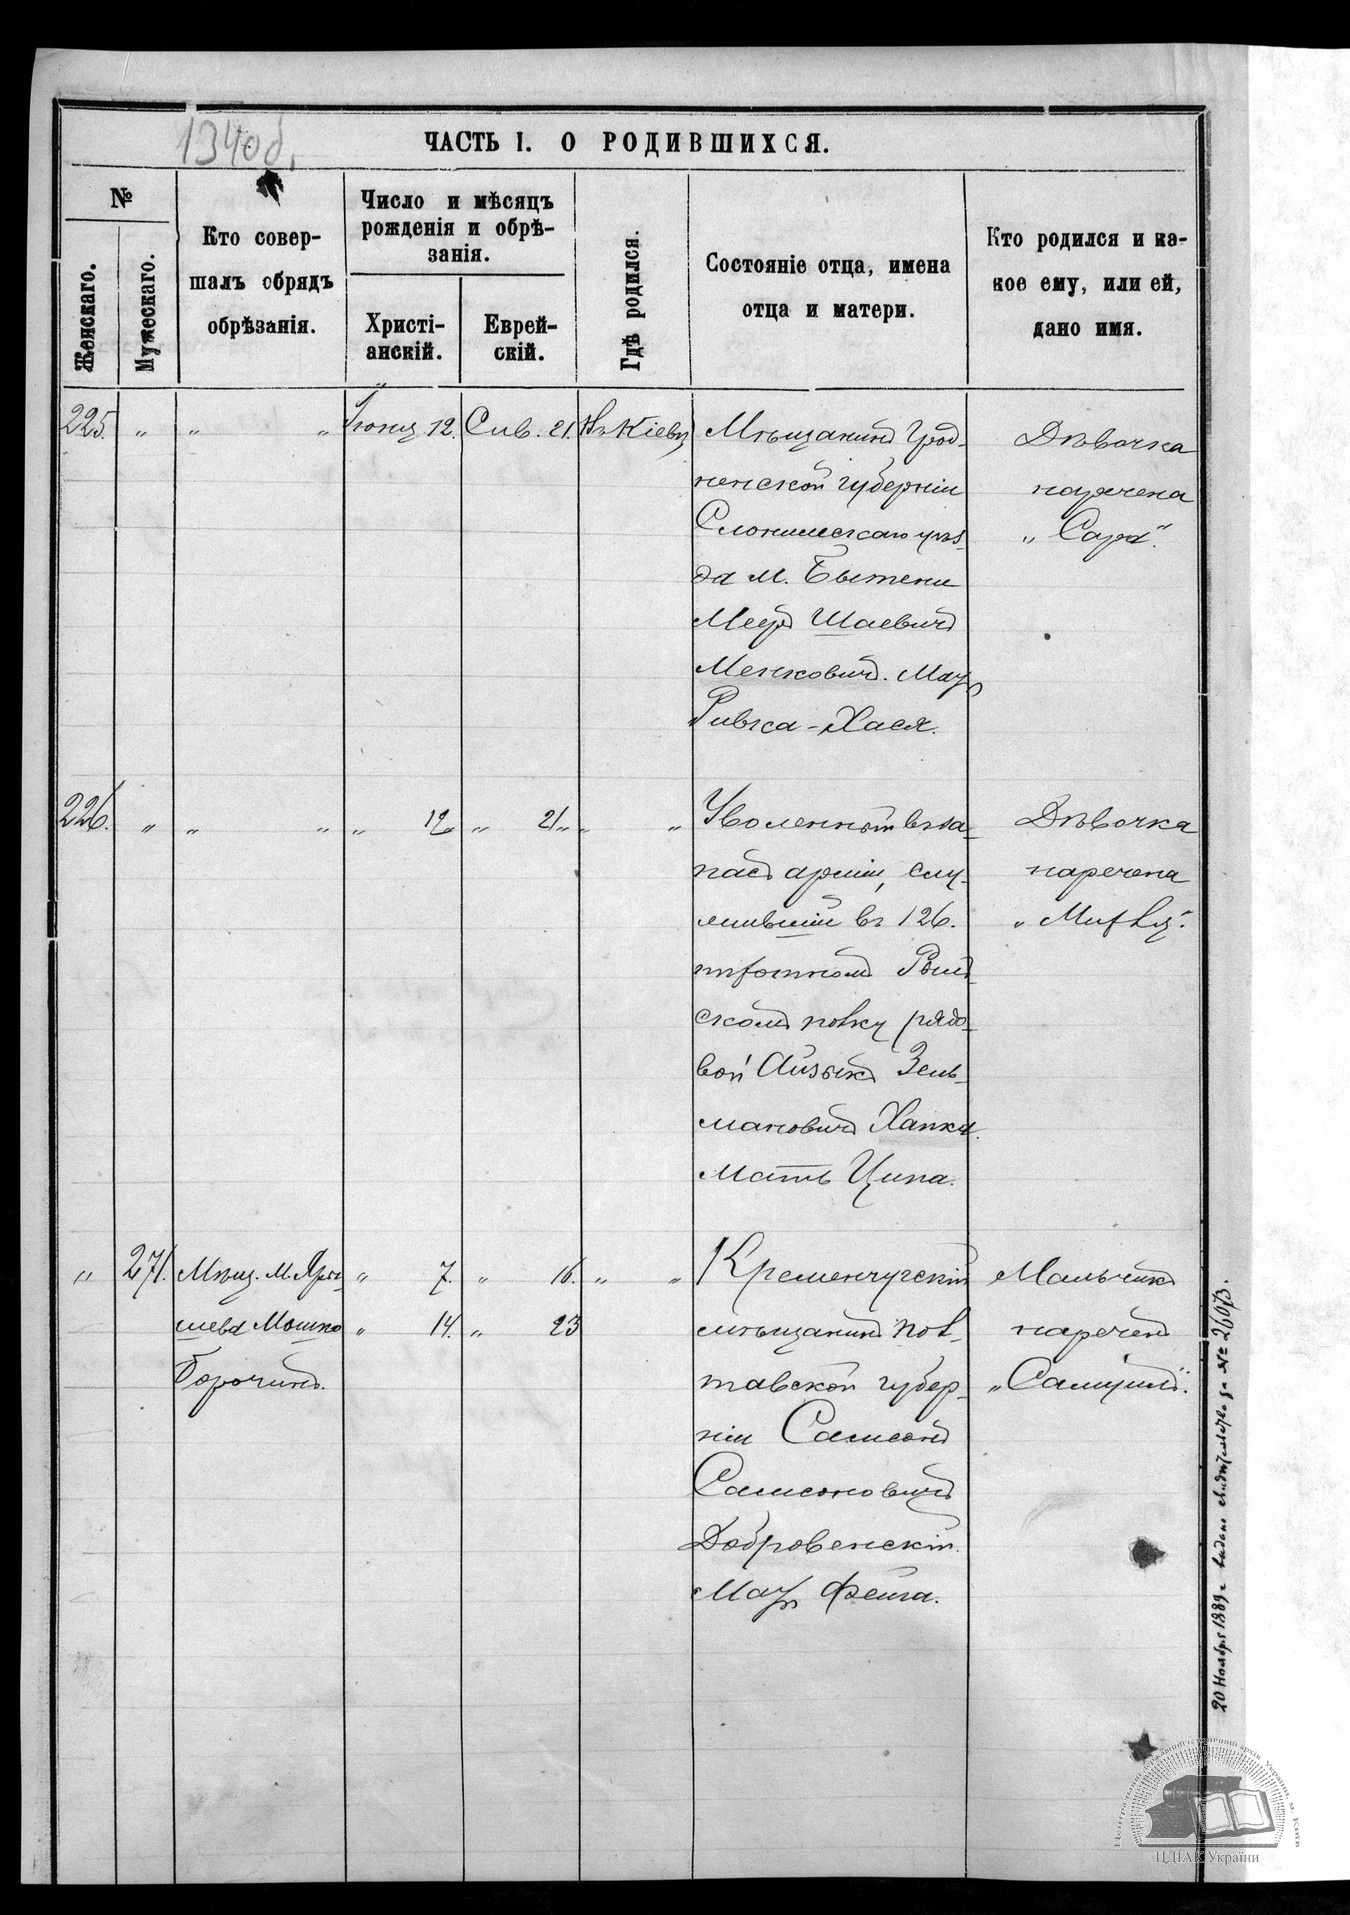 134об.
ЧАСТЬ I. О РОДИВШИХСЯ.
№
Женскаго.
Мужескаго.
Кто совер-
шалъ обрядъ
обрѣзанія.
Число и мѣсяцъ
рожденія и обрѣ-
занія.
Христі-
анскій.
Еврей-
скій.
Гдѣ родился.
Состояніе отца, имена
отца и матери.
Кто родился и ка-
кое ему, или ей,
дано имя.
225. „ „ „ Іюня 12. Сив. 21. Въ Кіевѣ
Мѣщанинъ Грод-
ненской губерніи
Слонимскаго уѣз-
да м. Бытени
Мееръ Шаевичъ
Менковичъ. Мать
Ривка-Хася.
Дѣвочка
наречена
„Сара“.
226. „ „ „ „ 12 „ 21 „ „ „
Уволенный въ за-
пасъ арміи, слу-
жившій въ 126.
пѣхотномъ Рыль-
скомъ полку рядо-
вой Айзыкъ Зель-
мановичъ Хапка.
Мать Ципа.
Дѣвочка
наречена
„ “.
„ 271. Мѣщ. м. Яры-
шева Мошко
Борочинъ.
„ 7. „ 16. „ „
„ 14. „ 23
Кременчугскій
мѣщанинъ Пол-
тавской губер-
ніи Самсонъ
Самсоновичъ
Добровенскій.
Мать Фейга.
Мальчикъ
нареченъ
„Самуилъ“.
20 Ноября 1889 г. выдано свидѣтельство за № 26073.
Центральний державний історичний архів України, м. Київ
ЦДІАК України